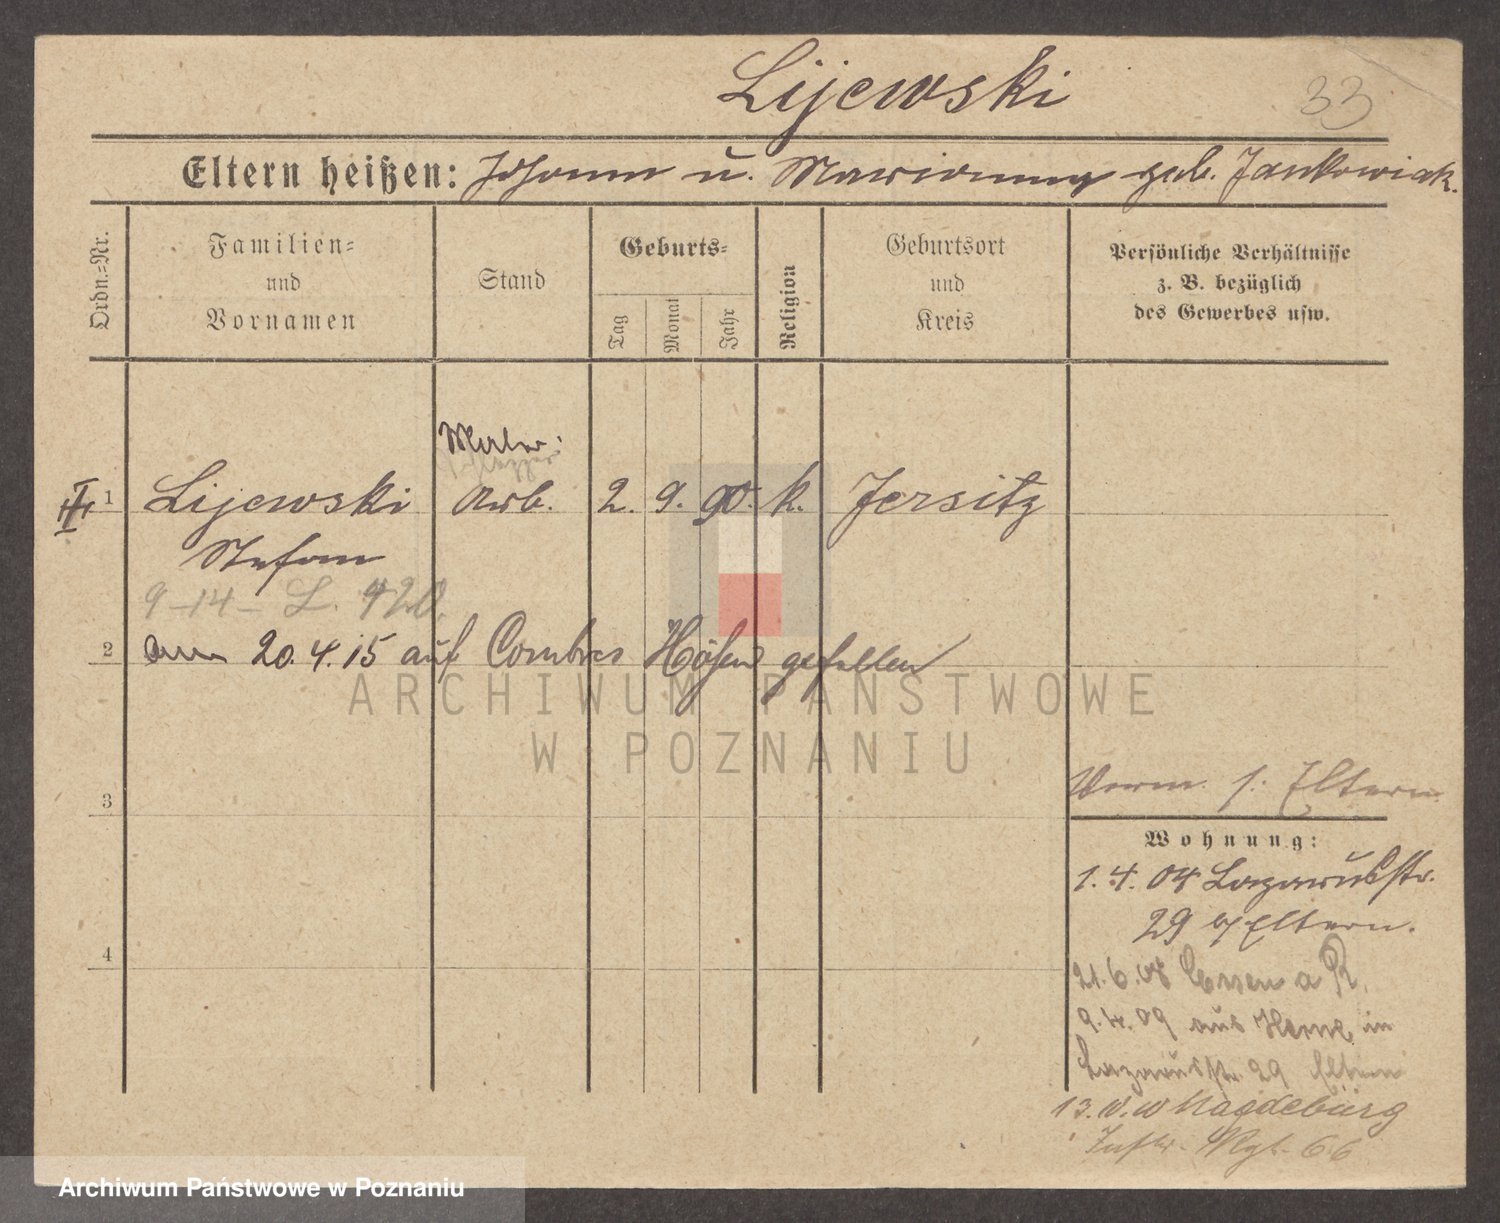 Lijewski
33
Eltern heißen: Johann u. Marianna geb. Jankowiak.
Ordn.=Nr.
Familien=
und
Vornamen
Stand
Geburts=
Tag
Monat
Jahr
Religion
Geburtsort
und
Kreis
Persönliche Verhältnisse
z. B. bezüglich
des Gewerbes usw.
Maler
III 1 Lijewski Arb. 2. 9. 90. k. Jersitz
Stefan
9-14- L. 420.
2 am 20.4.15 auf Combres Höhen gefallen
ARCHIWUM PAŃSTWOWE
W POZNANIU
Verm. s. Eltern
3
Wohnung:
1.4.04 Lazarusstr.
29 b/Eltern.
4
21.6.08 Essen a R.
9.4.09 aus Herne in
Lazarusstr. 29 Eltern
13.10.10 Magdeburg
Inftr. Rgt. 66
Archiwum Państwowe w Poznaniu